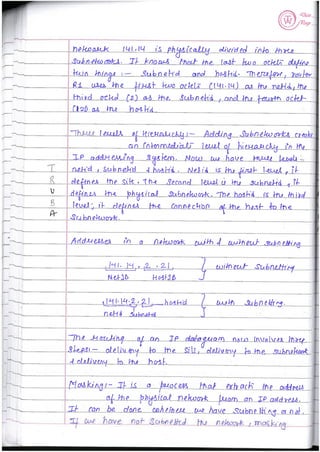 Date
Page
network 141.14 is physically divided into three
Subnetworks. It knows that the last two octets define
two things :- Subnetid and hostid. Therefore, router
R1 uses the first two octets (141.14) as the netid, the
third octed (2) as the Subnetid, and the fourth octet
as the hostid.
Three levels of Hierarchy:- Adding Subnetworks creates
an intermediate level of hierarchy in the
IP addressing System. Now we have three levels :-
netid, subnetid & hostid. Netid is the first level, it
defines the site. The Second level is the subnetid, it
defines the physical Subnetwork. The hostid is the third
level; it defines the connection of the host to the
Subnetwork.
T
R
U
B
A
Addresses in a network with & without subnetting
141.14.2.21 without Subnetting
NetID HostID
141.14.2.21 hostid with subnetting
netid Subnetid
The routing of an IP datagram now involves three
Steps:- delivery to the Site, delivery to the subnetwork
& delivery to the host.
Masking:- It is a process that extracts the address
of the physical network from an IP address.
It can be done we have Subnetting or not.
If we have not Subnetted the network, masking